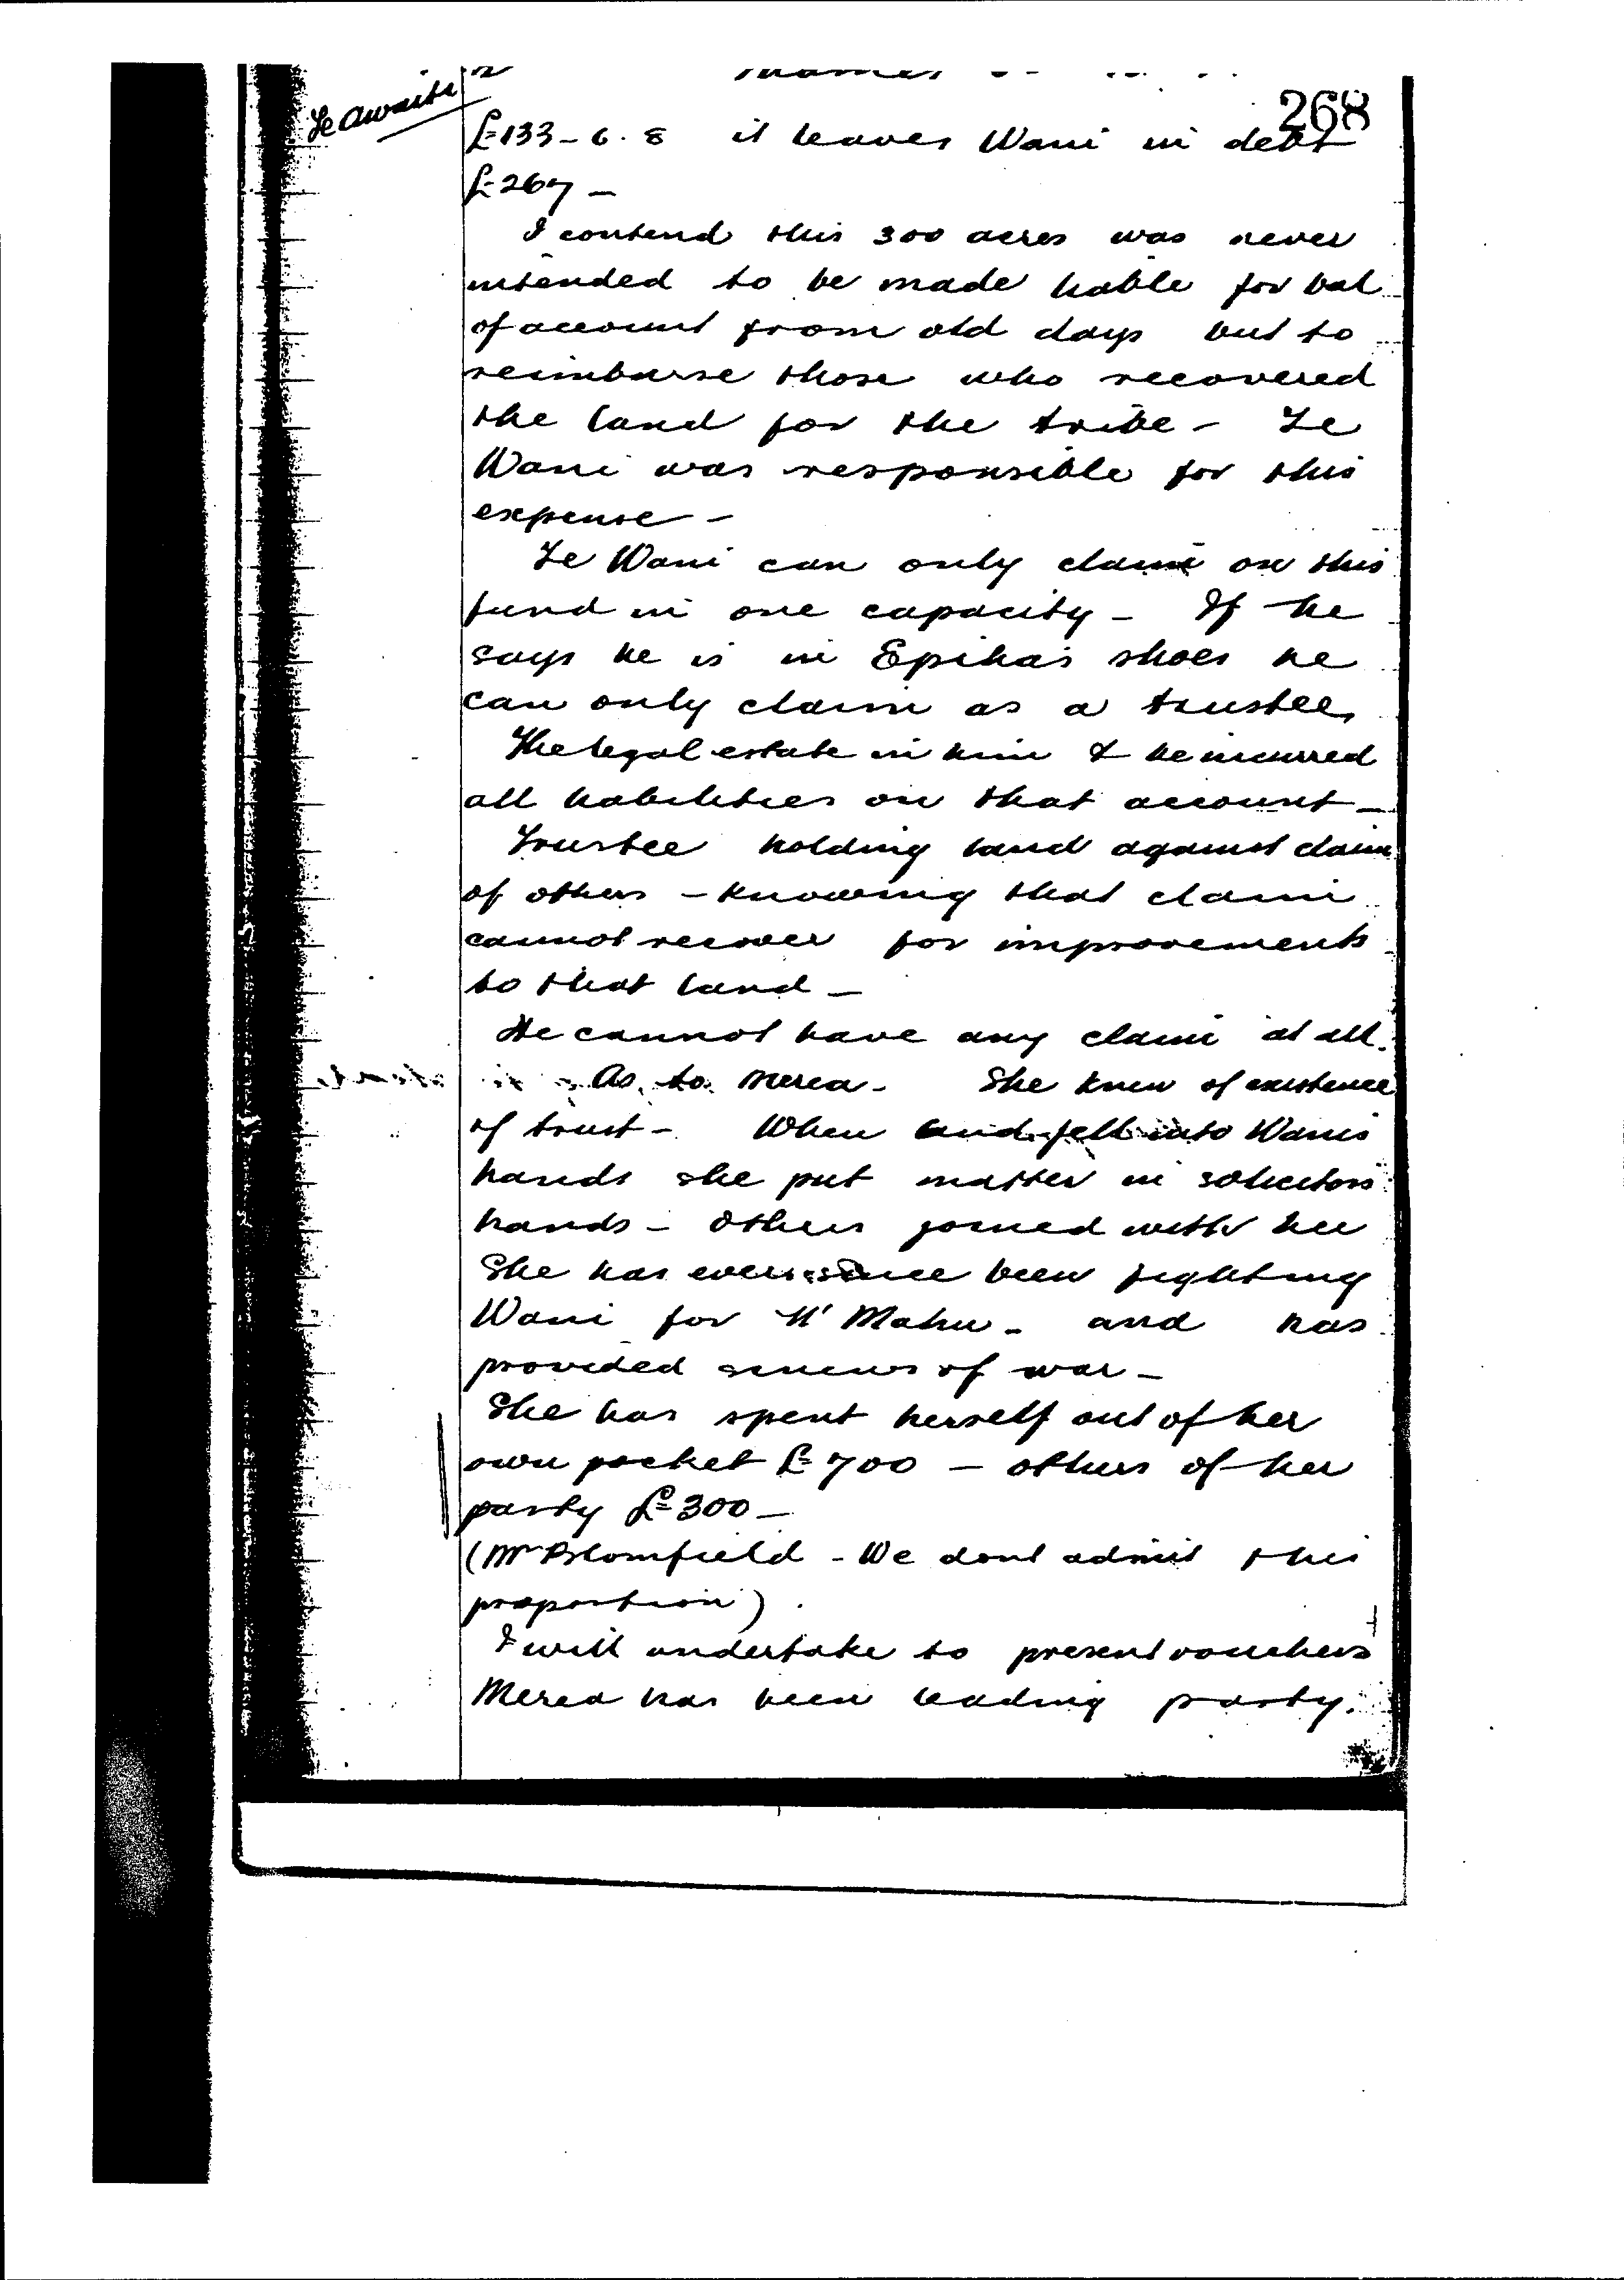 Te Awaiti
268
£133-6.8 it leaves Wani in debt
£267 -
I contend this 300 acres was never
intended to be made liable for bal
of account from old days but to
reimburse those who recovered
the land for the tribe - Te
Wani was responsible for this
expense -
Te Wani can only claim on this
fund in one capacity - If he
says he is in Epiha's shoes he
can only claim as a trustee,
The legal estate in him & he incurred
all liabilities on that account -
Trustee holding land against claim
of others - knowing that claim
cannot recover for improvements
to that land -
He cannot have any claim at all.
As to Merea - She knew of existence
of trust - When land fell into Wanis
hands she put matter in solicitors
hands - Others joined with her
She has ever since been fighting
Wani for N' Mahu - and has
provided sinews of war -
She has spent herself out of her
own pocket £700 - others of her
party £300 -
(Mr Blomfield - We dont admit this
proportion).
I will undertake to present vouchers
Merea has been leading party.